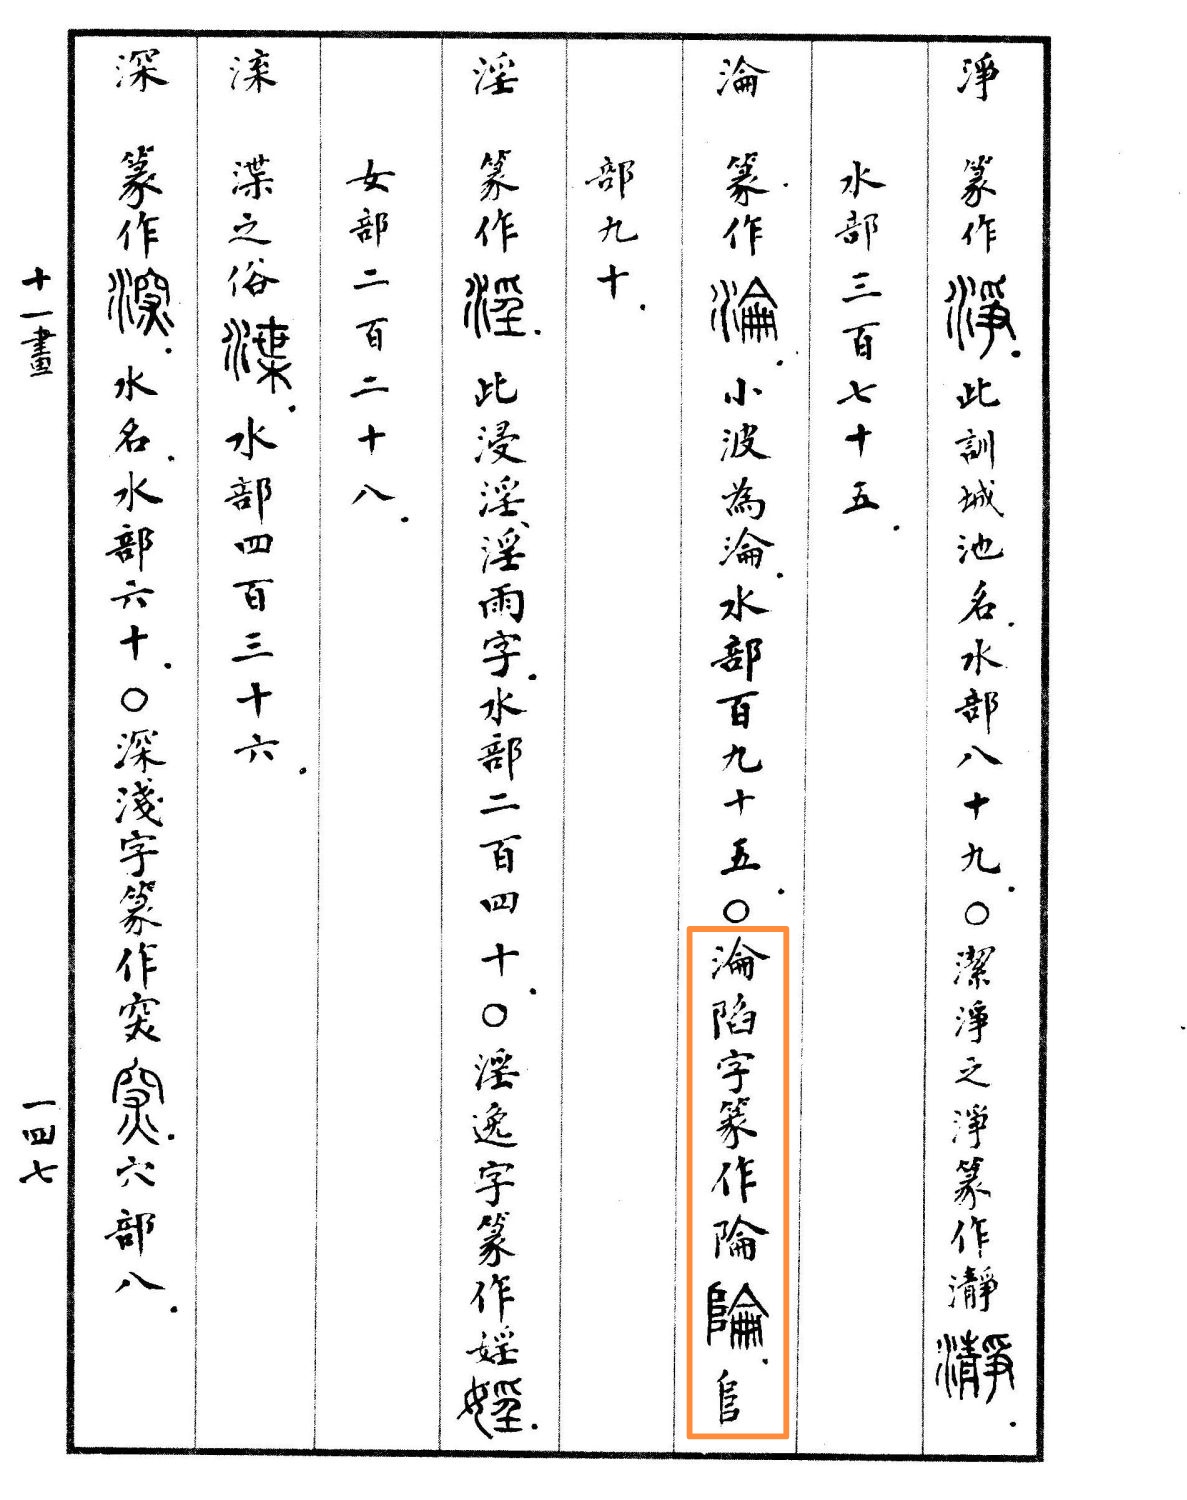 淨 篆作淨.此訓城池名.水部八十九.○潔淨之淨篆作瀞瀞.
水部三百七十五.
淪 篆作淪.小波為淪.水部百九十五.○淪陷字篆作陯陯.𨸏
部九十.
淫 篆作淫.此浸淫、淫雨字.水部二百四十.○淫逸字篆作婬婬.
女部二百二十八.
渫之俗渫.水部四百三十六.
深 篆作深.水名.水部六十.○深淺字篆作穾穾.穴部八.
十一畫
一四七